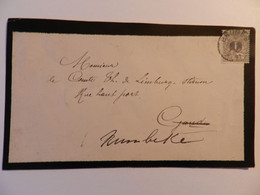 Monsieur
le Comte Th. de Limburg Stirum
Rue haut port
Gand
Numbeke